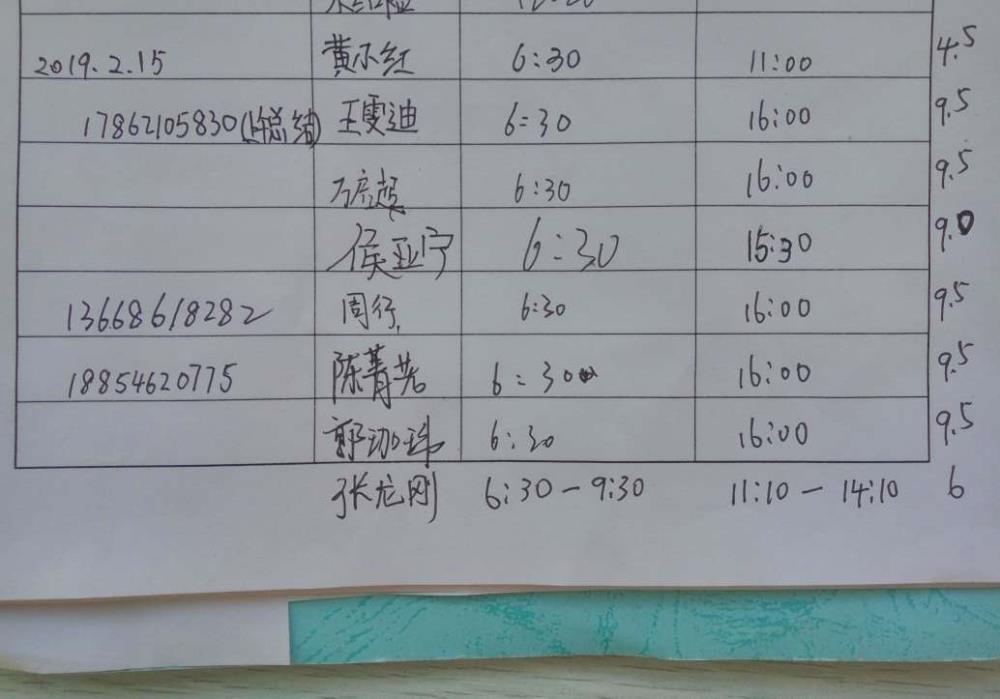 2019.2.15 黄小红 6:30 11:00 4.5
17862105830 王雯迪 6:30 16:00 9.5
6:30 16:00 9.5
侯亚宁 6:30 15:30 9.0
13668618282 周行 6:30 16:00 9.5
18854620775 陈菁 6:30 16:00 9.5
郭 6:30 16:00 9.5
张龙刚 6:30-9:30 11:10-14:10 6